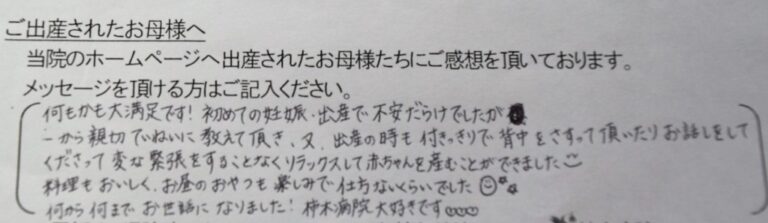 ご出産されたお母様へ
当院のホームページへ出産されたお母様たちにご感想を頂いております。
メッセージを頂ける方はご記入ください。
何もかも大満足です!初めての妊娠・出産で不安だらけでしたが
一から親切ていねいに教えて頂き、又、出産の時も付きっきりで背中をさすって頂いたりお話しをして
くださって変な緊張をすることなくリラックスして赤ちゃんを産むことができました
料理もおいしく、お昼のおやつも楽しみで仕方ないくらいでした
何から何までお世話になりました!柿木病院大好きです♡♡♡